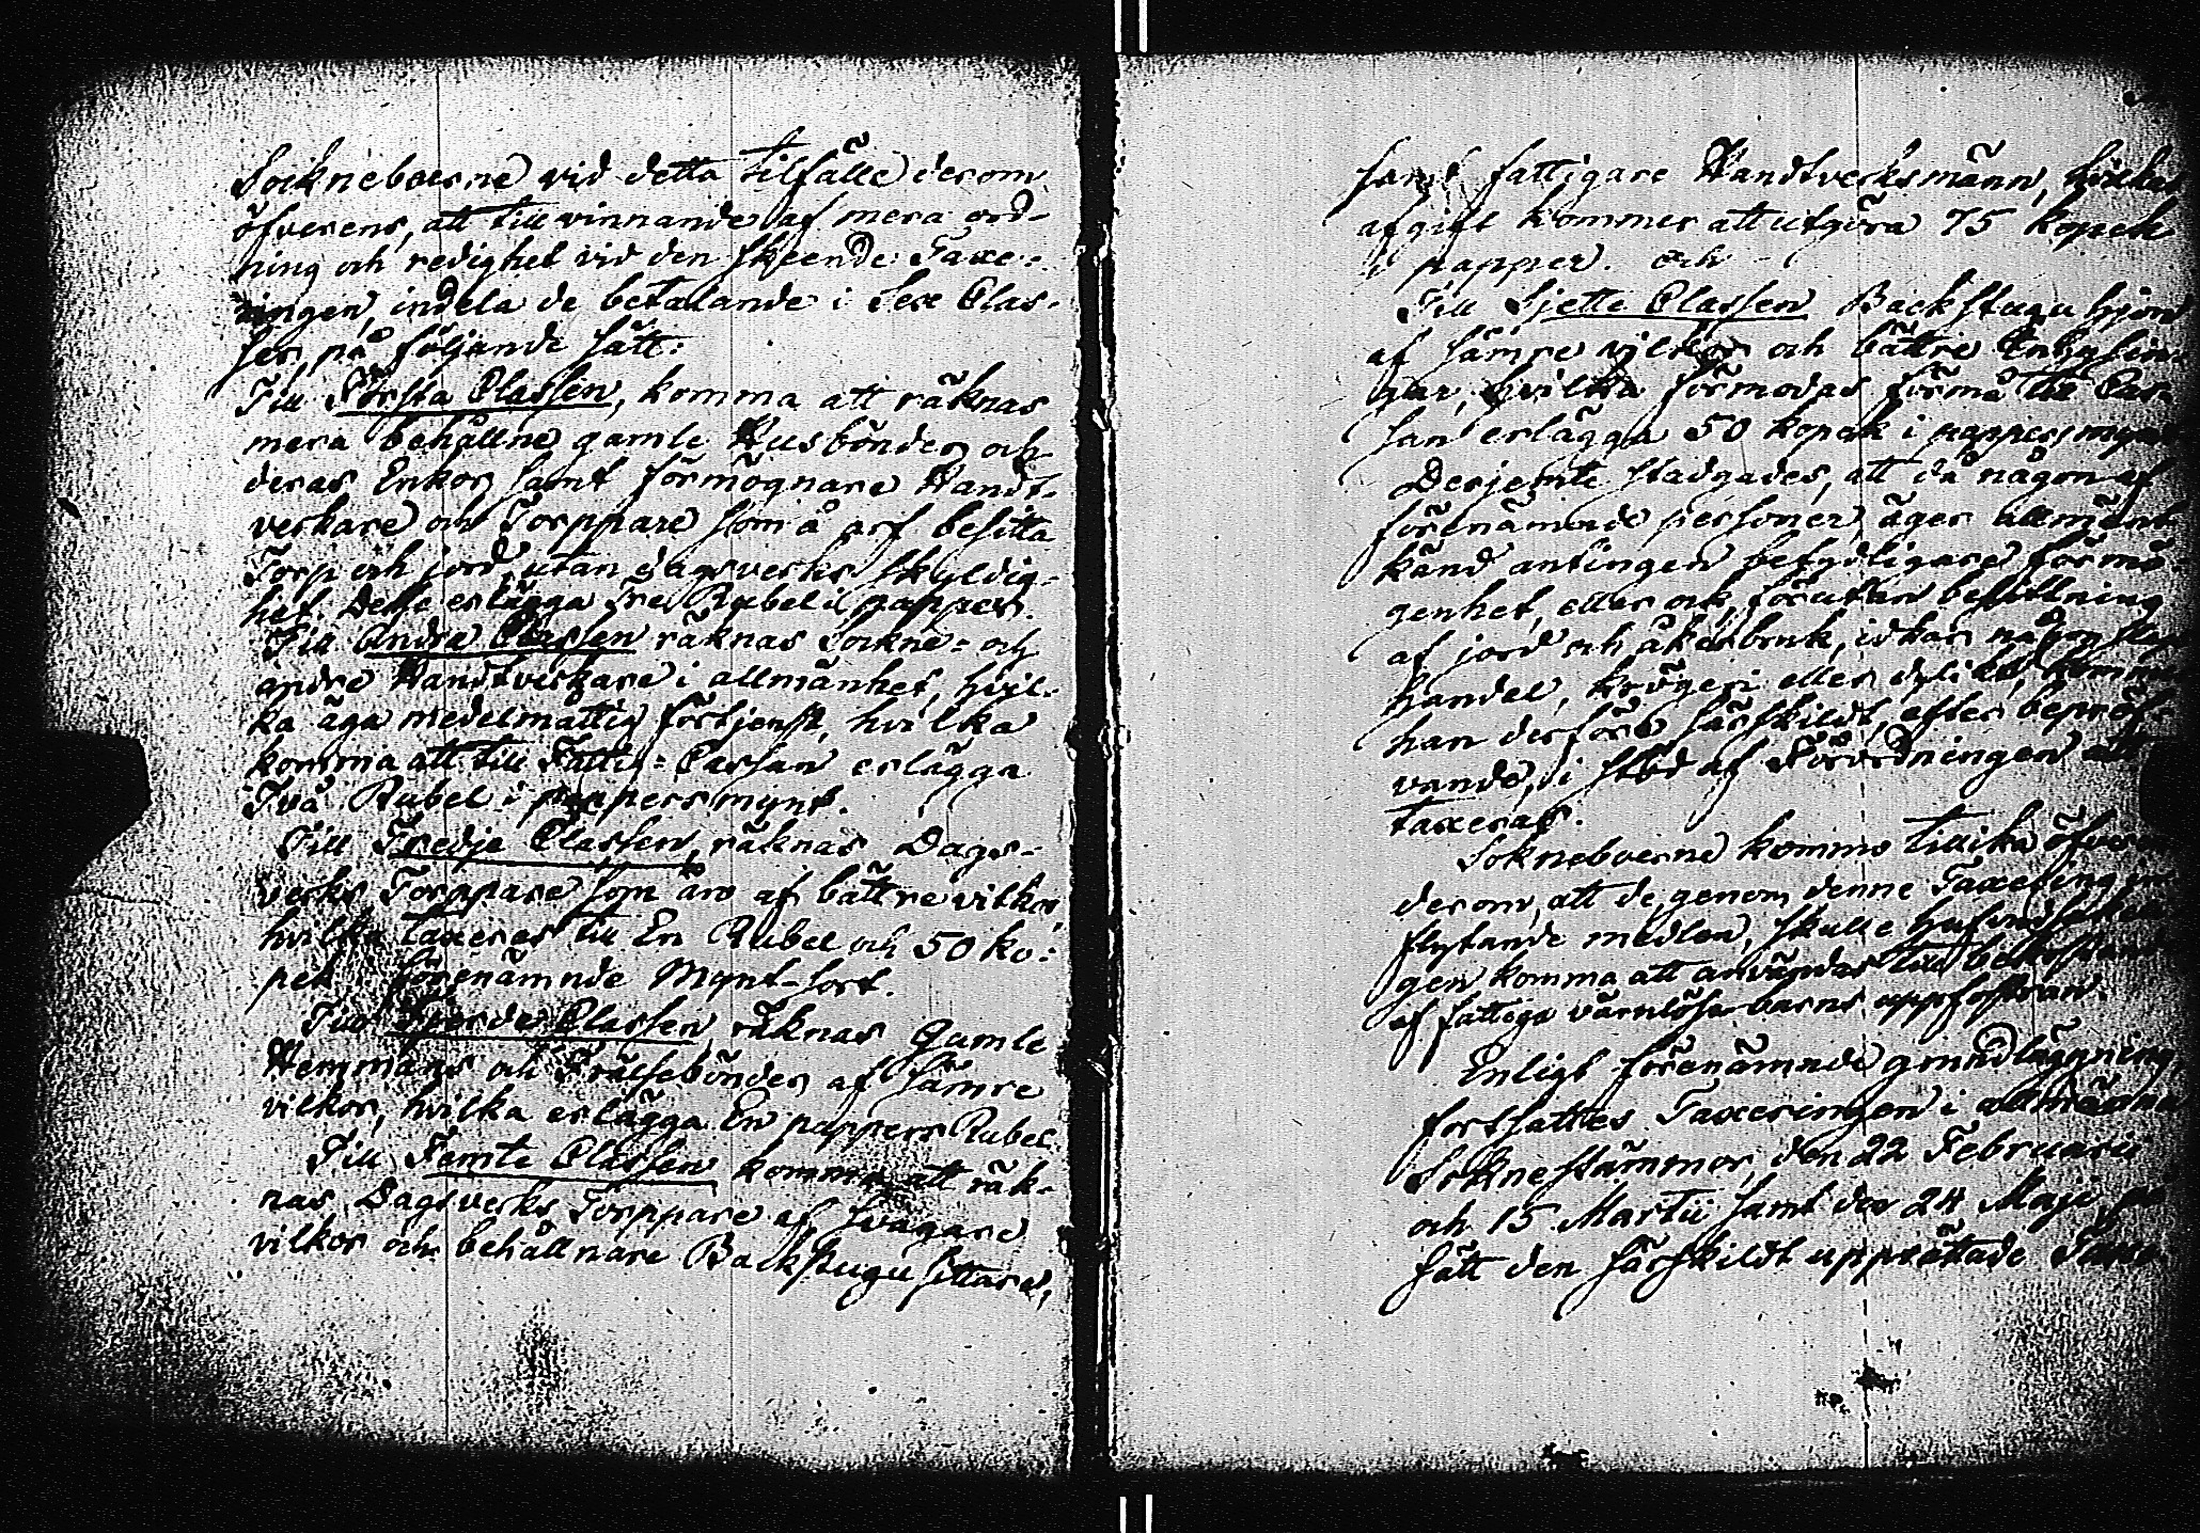 Sockneboerne vid detta tilfälle derom
öfverens, att till vinnande af mera ord-
ning och redighet vid den skeende Taxe-
ringen, indela de betalande i Sex Clas-
ser, på följande sätt:
Till Första Classen, komma att räknas
mera behållne gamle Husbönder och
deras Enkor, samt förmögnare Handt-
verkare och Torppare som å arf besitta
Torp och jord utan dagsverks skyldig-
het. Desse erlägga Tre Rubel i papper.
Till Andra Classen räknas Sockne- och
andre Handtverkare i allmänhet, hvil-
ka äga medelmåttig förtjenst, hvilka
komma att till Fattig-Cassan erlägga
Två Rubel i pappersmynt.
Till Tredje Classen, räknas Dags-
verks Torppare som äro af bättre vilkor
hvilka taxeres till En Rubel och 50 ko-
pek förenämnde Mynt-sort.
Till Fjerde Classen, räknas Gamle
Hemmans och Frälsebönder af sämre
vilkor, hvilka erlägga En pappers Rubel.
Till Femte Classen komma att räk-
nas Dagsverks Torppare af svagare
vilkor och behållnare Backstugu sittare,
samt fattigare Handtverksmänn, hvilkas
afgift kommer att utgöra 75 kopek
i papper. och
Till Sjette Classen Backstugu hjon
af sämre vilkor och bättre Inhysin-
gar, hvilka förmodas förmå till Cas-
san erlägga 50 kopek i pappersmynt
Derjemte stadgades, att då någon af
förenämnde personer, äger allmänt
känd antingen betydligare förmö-
genhet, eller ock, förutan besittning
af jord och åkerbruk, idkar någon
handel, krögeri eller dylikt, komme
han derföre särskildt, efter bepröf-
vande, i stöd af Förordningen att
taxeras.
Sokneboerne kommo tillika öfverens
derom, att de genom denne Taxering in-
flytande medlen, skulle hufvudsakeli-
gen komma att användas till bekostande
af fattiga värnlösa barns uppfostran.
Enligt förenämnde grundläggning,
fortsattes Taxeringen i allmänna
Soknestämmor, den 22 Februarii
och 15 Martii samt den 24 Maji, på
sätt den särskildt upprättade Taxe-